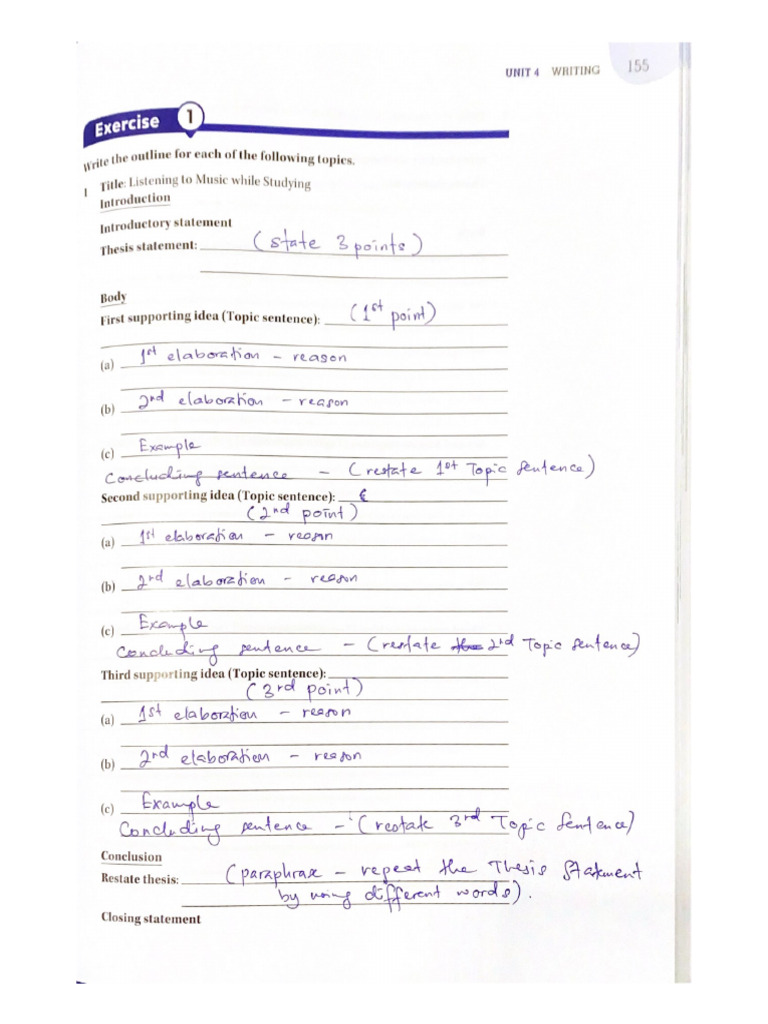 UNIT 4 WRITING 155
Exercise 1
Write the outline for each of the following topics.
1 Title: Listening to Music while Studying
Introduction
Introductory statement
Thesis statement: (state 3 points)
Body
First supporting idea (Topic sentence): (1st point)
(a) 1st elaboration - reason
(b) 2nd elaboration - reason
(c) Example
Concluding sentence - (restate 1st Topic Sentence)
Second supporting idea (Topic sentence):
(2nd point)
(a) 1st elaboration - reason
(b) 2nd elaboration - reason
(c) Example
Concluding sentence - (restate 2nd Topic Sentence)
Third supporting idea (Topic sentence):
(3rd point)
(a) 1st elaboration - reason
(b) 2nd elaboration - reason
(c) Example
Concluding sentence - (restate 3rd Topic Sentence)
Conclusion
Restate thesis: (paraphrase - repeat the Thesis Statement
by using different words).
Closing statement